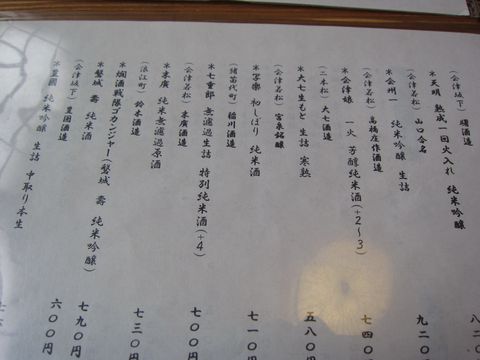 (会津坂下) 曙酒造
＊天明 熟成一回火入れ 純米吟醸 八二〇
(会津若松) 山口合名
＊会州一 純米吟醸 生詰 九二〇
(会津若松) 高橋庄作酒造
＊会津娘 一火 芳醇純米酒(+2〜3) 七四〇
(二本松) 大七酒造
＊大七生もと 生詰 寒熟 五八〇円
(会津若松) 宮泉銘醸
＊写樂 初しぼり 純米酒 七一〇円
(猪苗代町) 稲川酒造
＊七重郎 無濾過生詰 特別純米酒(+4) 七〇〇円
(会津若松) 末廣酒造
＊末廣 純米無濾過原酒 七三〇円
(浪江町) 鈴木酒造
＊燗酒戦隊ゴカンジャー(磐城 壽 純米吟醸)
＊磐城 壽 純米酒 七九〇円
(会津坂下) 豊国酒造 六〇〇円
＊豊圀 純米吟醸 生詰 中取り本生